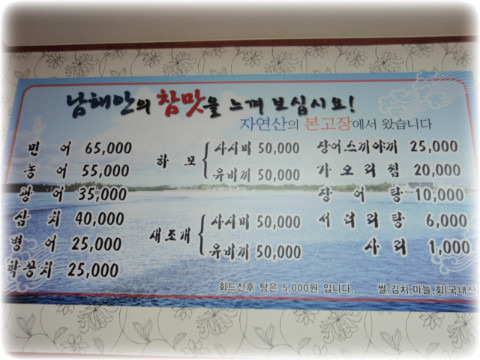 남해안의 참맛을 느껴 보십시요!
자연산의 본고장에서 왔습니다
민 어 65,000
농 어 55,000
광 어 35,000
삼 치 40,000
병 어 25,000
학꽁치 25,000
하 모 사시미 50,000
유비끼 50,000
새조개 사시미 50,000
유비끼 50,000
장어스끼야끼 25,000
가 오 리 찜 20,000
장 어 탕 10,000
서 더 리 탕 6,000
사 리 1,000
회드신후 탕은 5,000원 입니다.
쌀.김치.마늘.회(국내산